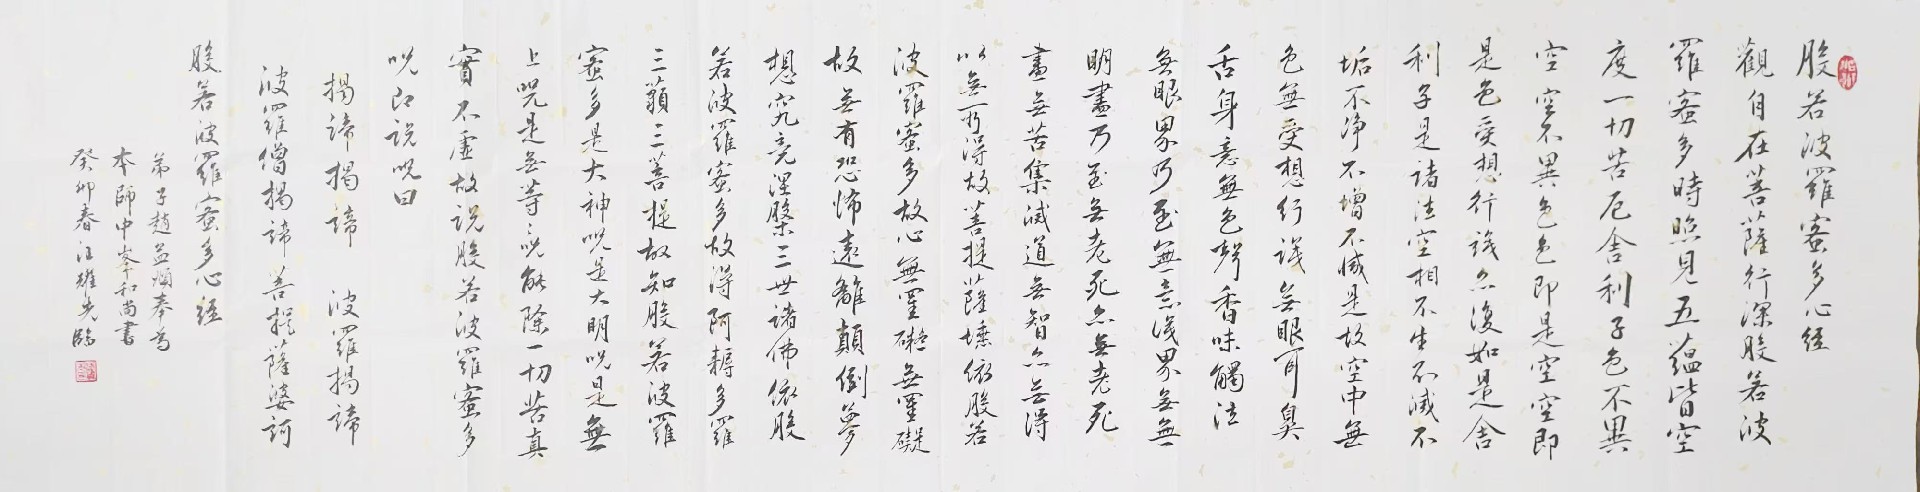 般若波羅蜜多心經
觀自在菩薩行深般若波
羅蜜多時照見五蘊皆空
度一切苦厄舍利子色不異
空空不異色色即是空空即
是色受想行識亦復如是舍
利子是諸法空相不生不滅不
垢不淨不增不減是故空中無
色無受想行識無眼耳鼻
舌身意無色聲香味觸法
無眼界乃至無意識界無無
明盡乃至無老死亦無老死
盡無苦集滅道無智亦無得
以無所得故菩提薩埵依般若
波羅蜜多故心無罣礙無罣礙
故無有恐怖遠離顛倒夢
想究竟涅槃三世諸佛依般
若波羅蜜多故得阿耨多羅
三藐三菩提故知般若波羅
蜜多是大神呪是大明呪是無
上呪是無等〻呪能除一切苦真
實不虛故說般若波羅蜜多
呪即說呪曰
揭諦揭諦 波羅揭諦
波羅僧揭諦 菩提薩婆訶
般若波羅蜜多心經
弟子趙孟頫奉為
本師中峯和尚書
癸卯春汪雄光臨